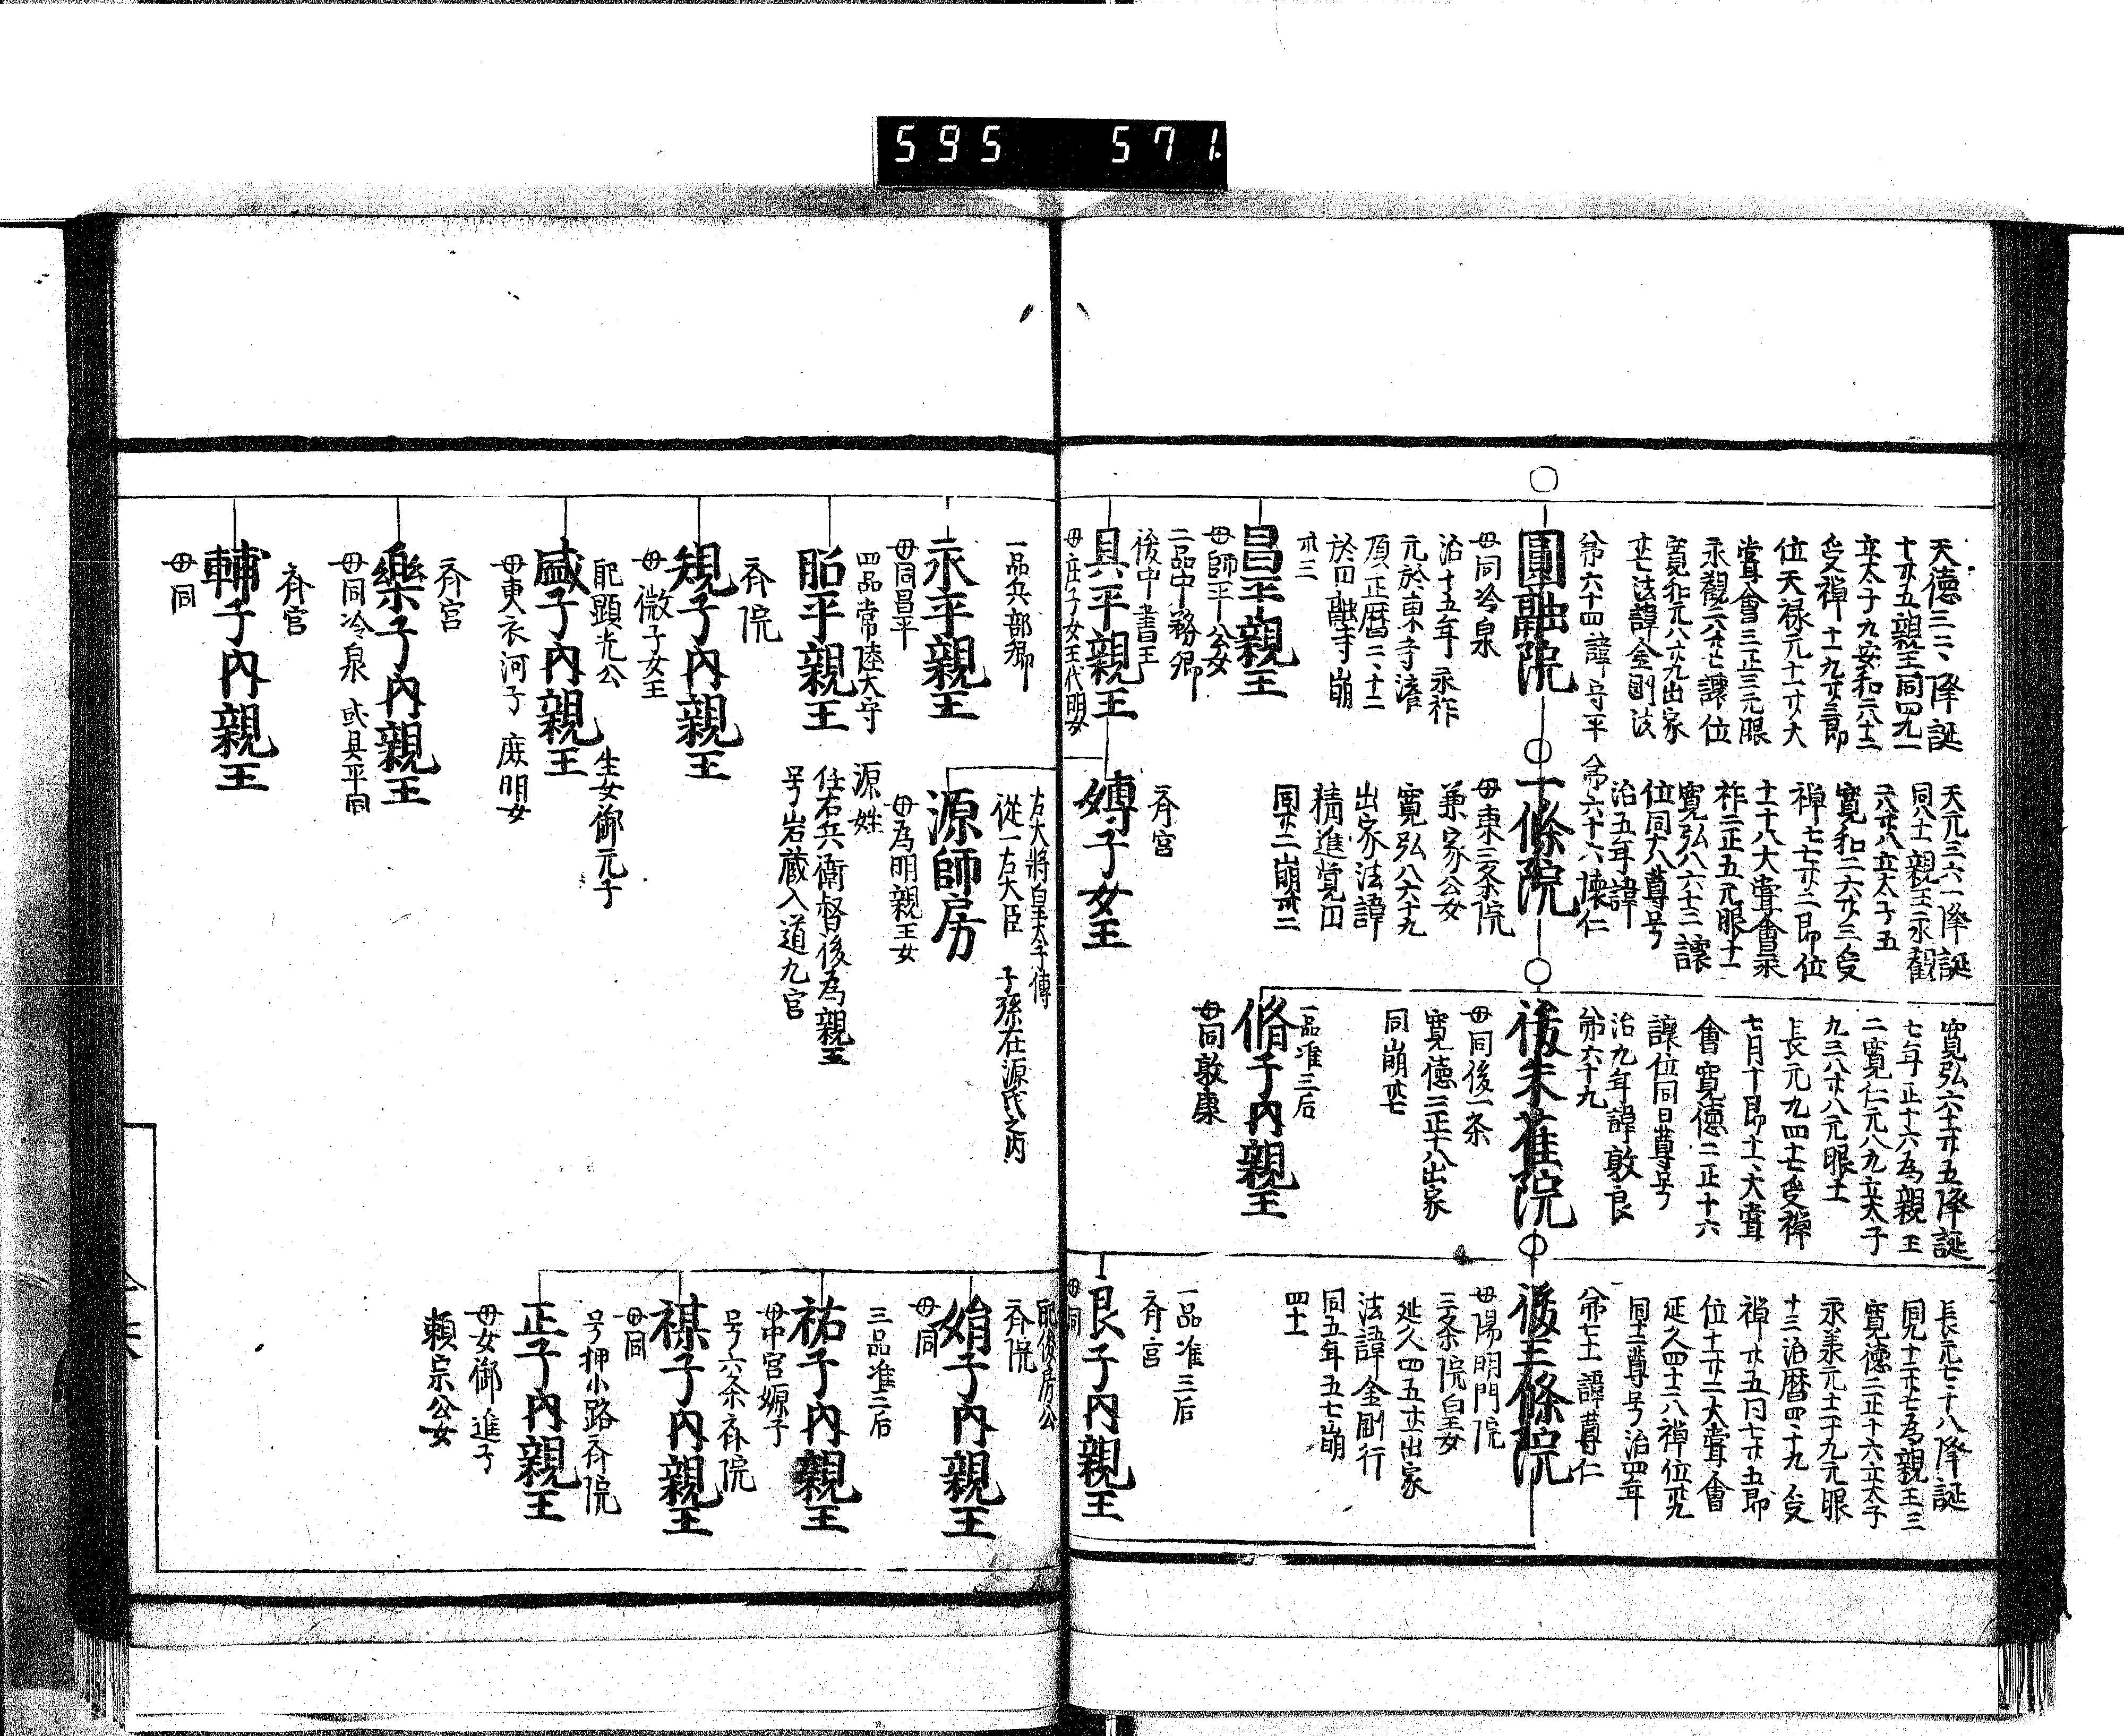 595 571
天德三三、降誕
十廿五親王同四九一
立太子九安和二八十三
受禪十一九廿三即
位天禄元十一廿大
嘗會三正三元服
永觀二八廿七讓位
寛和元八廿九出家
廿七法諱金剛法
第六十四諱守平
圓融院
母同冷泉
治十五年永祚
元於東寺潅
頂正暦二、十二
於円融寺崩
卅三
昌平親王
母師平公女
二品中務卿
後中書王
具平親王
母庄子女王代明女
天元三六一降誕
同八十一親王永觀
二八廿八立太子五
寛和二六廿三受
禪七七廿二即位
十一十八大嘗會永
祚二正五元服十一
寛弘八六十三讓
位同十八尊号
治五年諱
第六十六懐仁
一條院
母東三条院
兼家公女
寛弘八六十九
出家法諱
精進覚円
同廿二崩卅二
齐宮
嫥子女王
寛弘六十一廿五降誕
七年正十六為親王
二寛仁元八九立太子
九三八廿八元服十一
長元九四十七受禪
七月十即十一、大嘗
會寛德二正十六
讓位同日尊号
治九年諱敦良
第六十九
後朱雀院
母同後一条
寛德二正十八出家
同崩卅七
一品准三后
脩子内親王
母同敦康
長元七七十八降誕
同九十二廿七為親王三
寛德二正十六立太子
永兼元十二十九元服
十三治暦四四十九受
禪廿五同七廿五即
位十一廿二大嘗會
延久四十二八禅位卅九
同十一尊号治四年
第七十一諱尊仁
後三條院
母陽明門院
三条院皇女
延久四五廿一出家
法諱金剛行
同五年五七崩
四十
一品准三后
齐宮
良子内親王
母同
一品兵部卿
永平親王
母同昌平
四品常陸太守
昭平親王
源姓
任右兵衛督後為親王
号岩蔵入道九宮
齐院
規子内親王
母徽子女王
配顕光公
生女御元子
盛子内親王
母更衣河子 庶明女
齐宮
樂子内親王
母同冷泉 或具平同
齐宮
輔子内親王
母同
左大將皇太子傅
從一右大臣 子孫在源氏之内
源師房
母為明親王女
配後房公
齐院
娟子内親王
母同
三品准三后
祐子内親王
母中宮嫄子
号六条齐院
禖子内親王
母同
号押小路齐院
正子内親王
母女御進子
頼宗公女